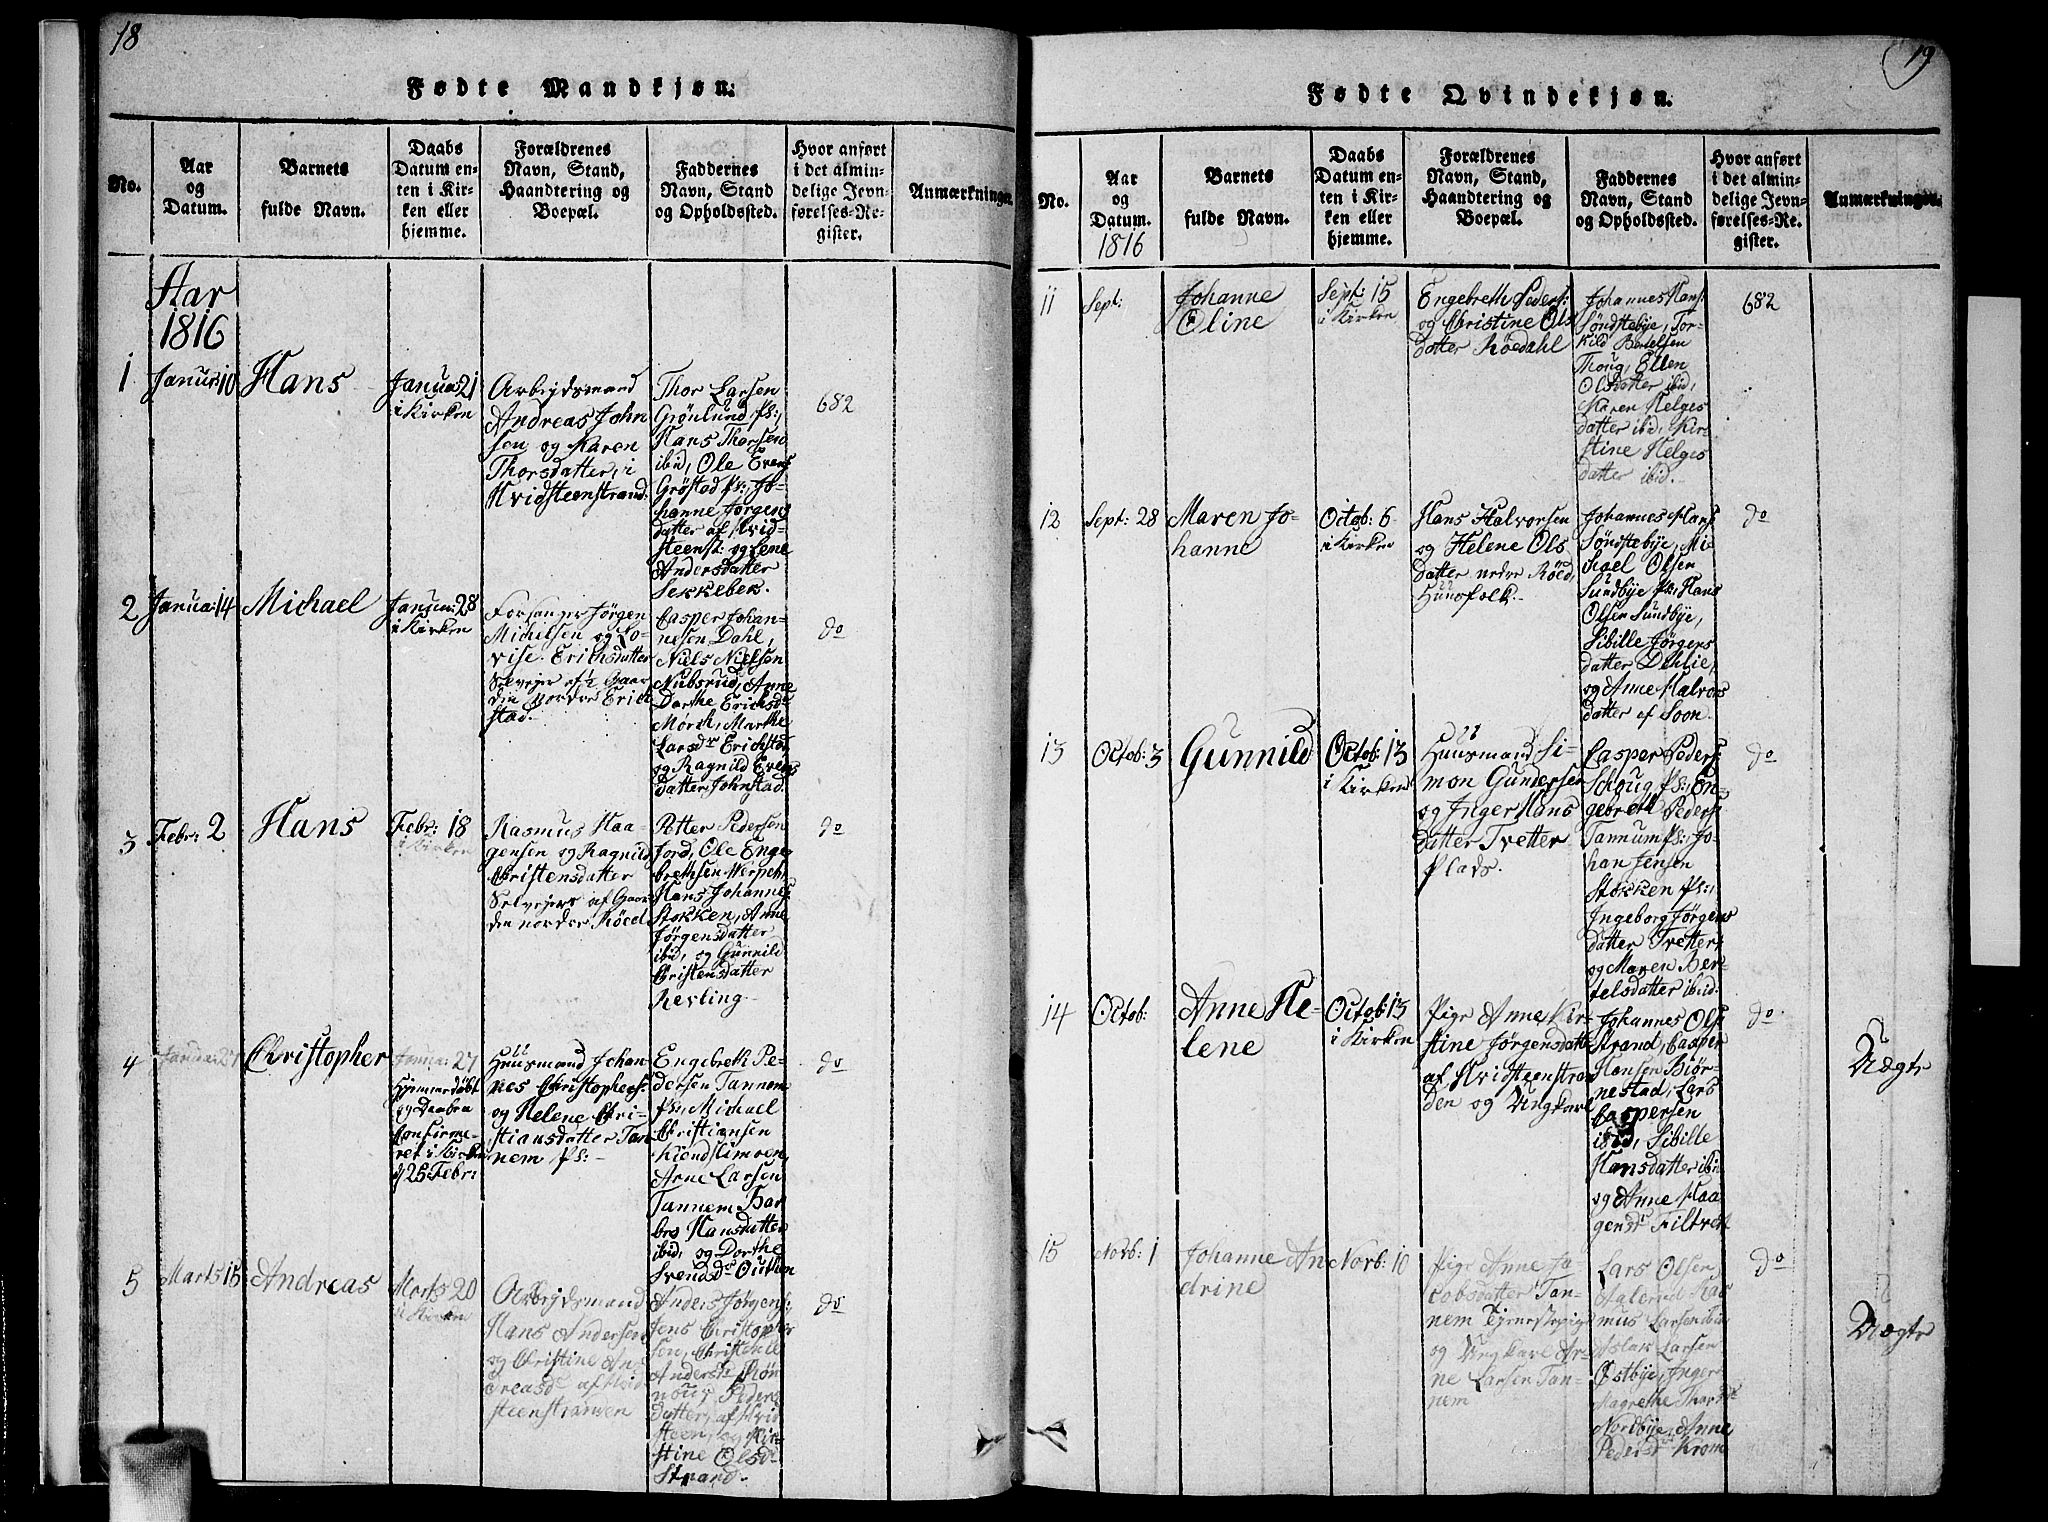 18
Fødte Mandkjøn.
No.
Aar
og
Datum.
Barnets
fulde Navn.
Daabs
Datum en-
ten i Kir-
ken eller
hjemme.
Forældrenes
Navn, Stand,
Haandtering og
Boepæl.
Faddernes
Navn, Stand
og Opholdssted.
Hvor anført
i det almin-
delige Jevn-
førelses-Re-
gister.
Anmærkninger.
Aar
1816
1
Janua: 10
Hans
Janua: 21
i Kirken
Arbejdsmand
Andreas John
sen og Karen
Thorsdatter, i
Hvidsteenstrand.
Thor Larsen
Grønlund Ps:,
Hans Thorsen
ibid, Ole Evens
Grøstad Ps:, Jo-
hanne Jørgens
datter af Hvid-
steenst: og Lene
Andersdatter
Sekkebek.
682
2
Janua: 14
Michael
Janua: 28
i Kirken
Forsanger Jørgen
Michelsen og Lo-
vise Erichsdatter
Selvejer af ½ Gaar
den nordre Erich
stad.
Casper Johan-
nesen Dahl,
Niels Nielsen
Nubsrud, Anne
Dorthe Erichsdr
Mørch, Marthe
Larsdr Erichstad
og Ragnild Evens
datter Johnstad.
do
3
Febr: 2
Hans
Febr: 18
i Kirken
Rasmus Haa-
gensen og Ragnild
Christensdatter
Selvejere af Gaar
den nordre Röed
Petter Pedersen
Jord, Ole Enge-
brethsen Werpen,
Hans Johannes:
Stokken, Anne
Jørgensdatter
ibid, og Gunnild
Christensdatter
Revling.
do
4
Janua: 27
Christopher
Janua: 27
Hjemmedøbt
og Daaben
Confirme-
ret i Kirken
d 25 Febr:
Huusmand Johan-
nes Christophers:
og Helene Chri-
stiansdatter Tan
nem Ps:
Engebreth Pe-
dersen Tannem
Ps: Michael
Christiansen
Arne Larsen
Tannem Bar
bro Hansdatter
ibid, og Dorthe
Svendsdr Outhen
do
5
Marts 15
Andreas
Marts 20
i Kirken
Arbejdsmand
Hans Andersen
og Christine An-
dreasdr af Hvid
steenstranden
Anders Jørgens:,
Jens Christopher
sen, Christence
Peders
datter, af Hvid
steen, og Kir-
stine Olsdr
Strand.
do
19
Fødte Qvindekjøn.
No.
Aar
og
Datum.
1816
Barnets
fulde Navn.
Daabs
Datum en-
ten i Kir-
ken eller
hjemme.
Forældrenes
Navn, Stand,
Haandtering og
Boepæl.
Faddernes
Navn, Stand
og Opholdssted.
Hvor anført
i det almin-
delige Jevn-
førelses-Re-
gister.
Anmærkninger.
11
Sept:
Johanne
Oline
Sept: 15
i Kirken
Engebreth Peders:
og Christine Ols
datter Röedahl
Johannes Hans:
Söndstebye, Tor-
kild Bertelsen
Thoug, Ellen
Olsdatter ibid,
Maren Helges
datter ibid, Kir-
stine Helges
datter ibid.
682
12
Sept: 28
Maren Jo-
hanne
Octob: 6
i Kirken
Hans Halvorsen
og Helene Ols
datter nedre Röed
Huusfolk.
Johannes Hans:
Söndstebye, Mi-
chael Olsen
Sundbye Ps:, Hans
Olsen Sundbye,
Sibille Jørgens
datter Dehlie,
og Anne Halvors
datter af Soon.
do
13
Octob: 3
Gunnild
Octob: 13
i Kirken
Huusmand Si-
mon Gundersen
og Inger Hans
datter Tvetter
Plads.
Casper Peders:
Schoug Ps:, En-
gebreth Peders:
Tannum Ps:, Jo-
han Jensen
Stokken Ps:,
Ingeborg Jørgens
datter Tvetter
og Maren Ber-
telsdatter ibid.
do
14
Octob:
Anne He-
lene
Octob: 13
i Kirken
Pige Anne Kir-
stine Jørgensdatt
af Hvidsteenstran
den og Ungkarl
Johannes Ols:
Strand, Casper
Hansen Biör-
nestad, Lars
Caspersen
ibid, Sibille
Hansdatter ibid
og Anne Haa
gensdr Filtvedt
do
Uægte
15
Novb: 1
Johanne An
drine
Novb: 10
Pige Anne Ja-
cobsdatter Tan-
nem Tjenestepige
og Ungkarl Ar-
ne Larsen Tan-
nem
Lars Olsen
Aalerud Ras
mus Larsen ibid
Aslak Larsen
Østbye, Inger
Magrethe Thorsdr
Nordbye, Anne
Pedersdr Krom
do
Uægte